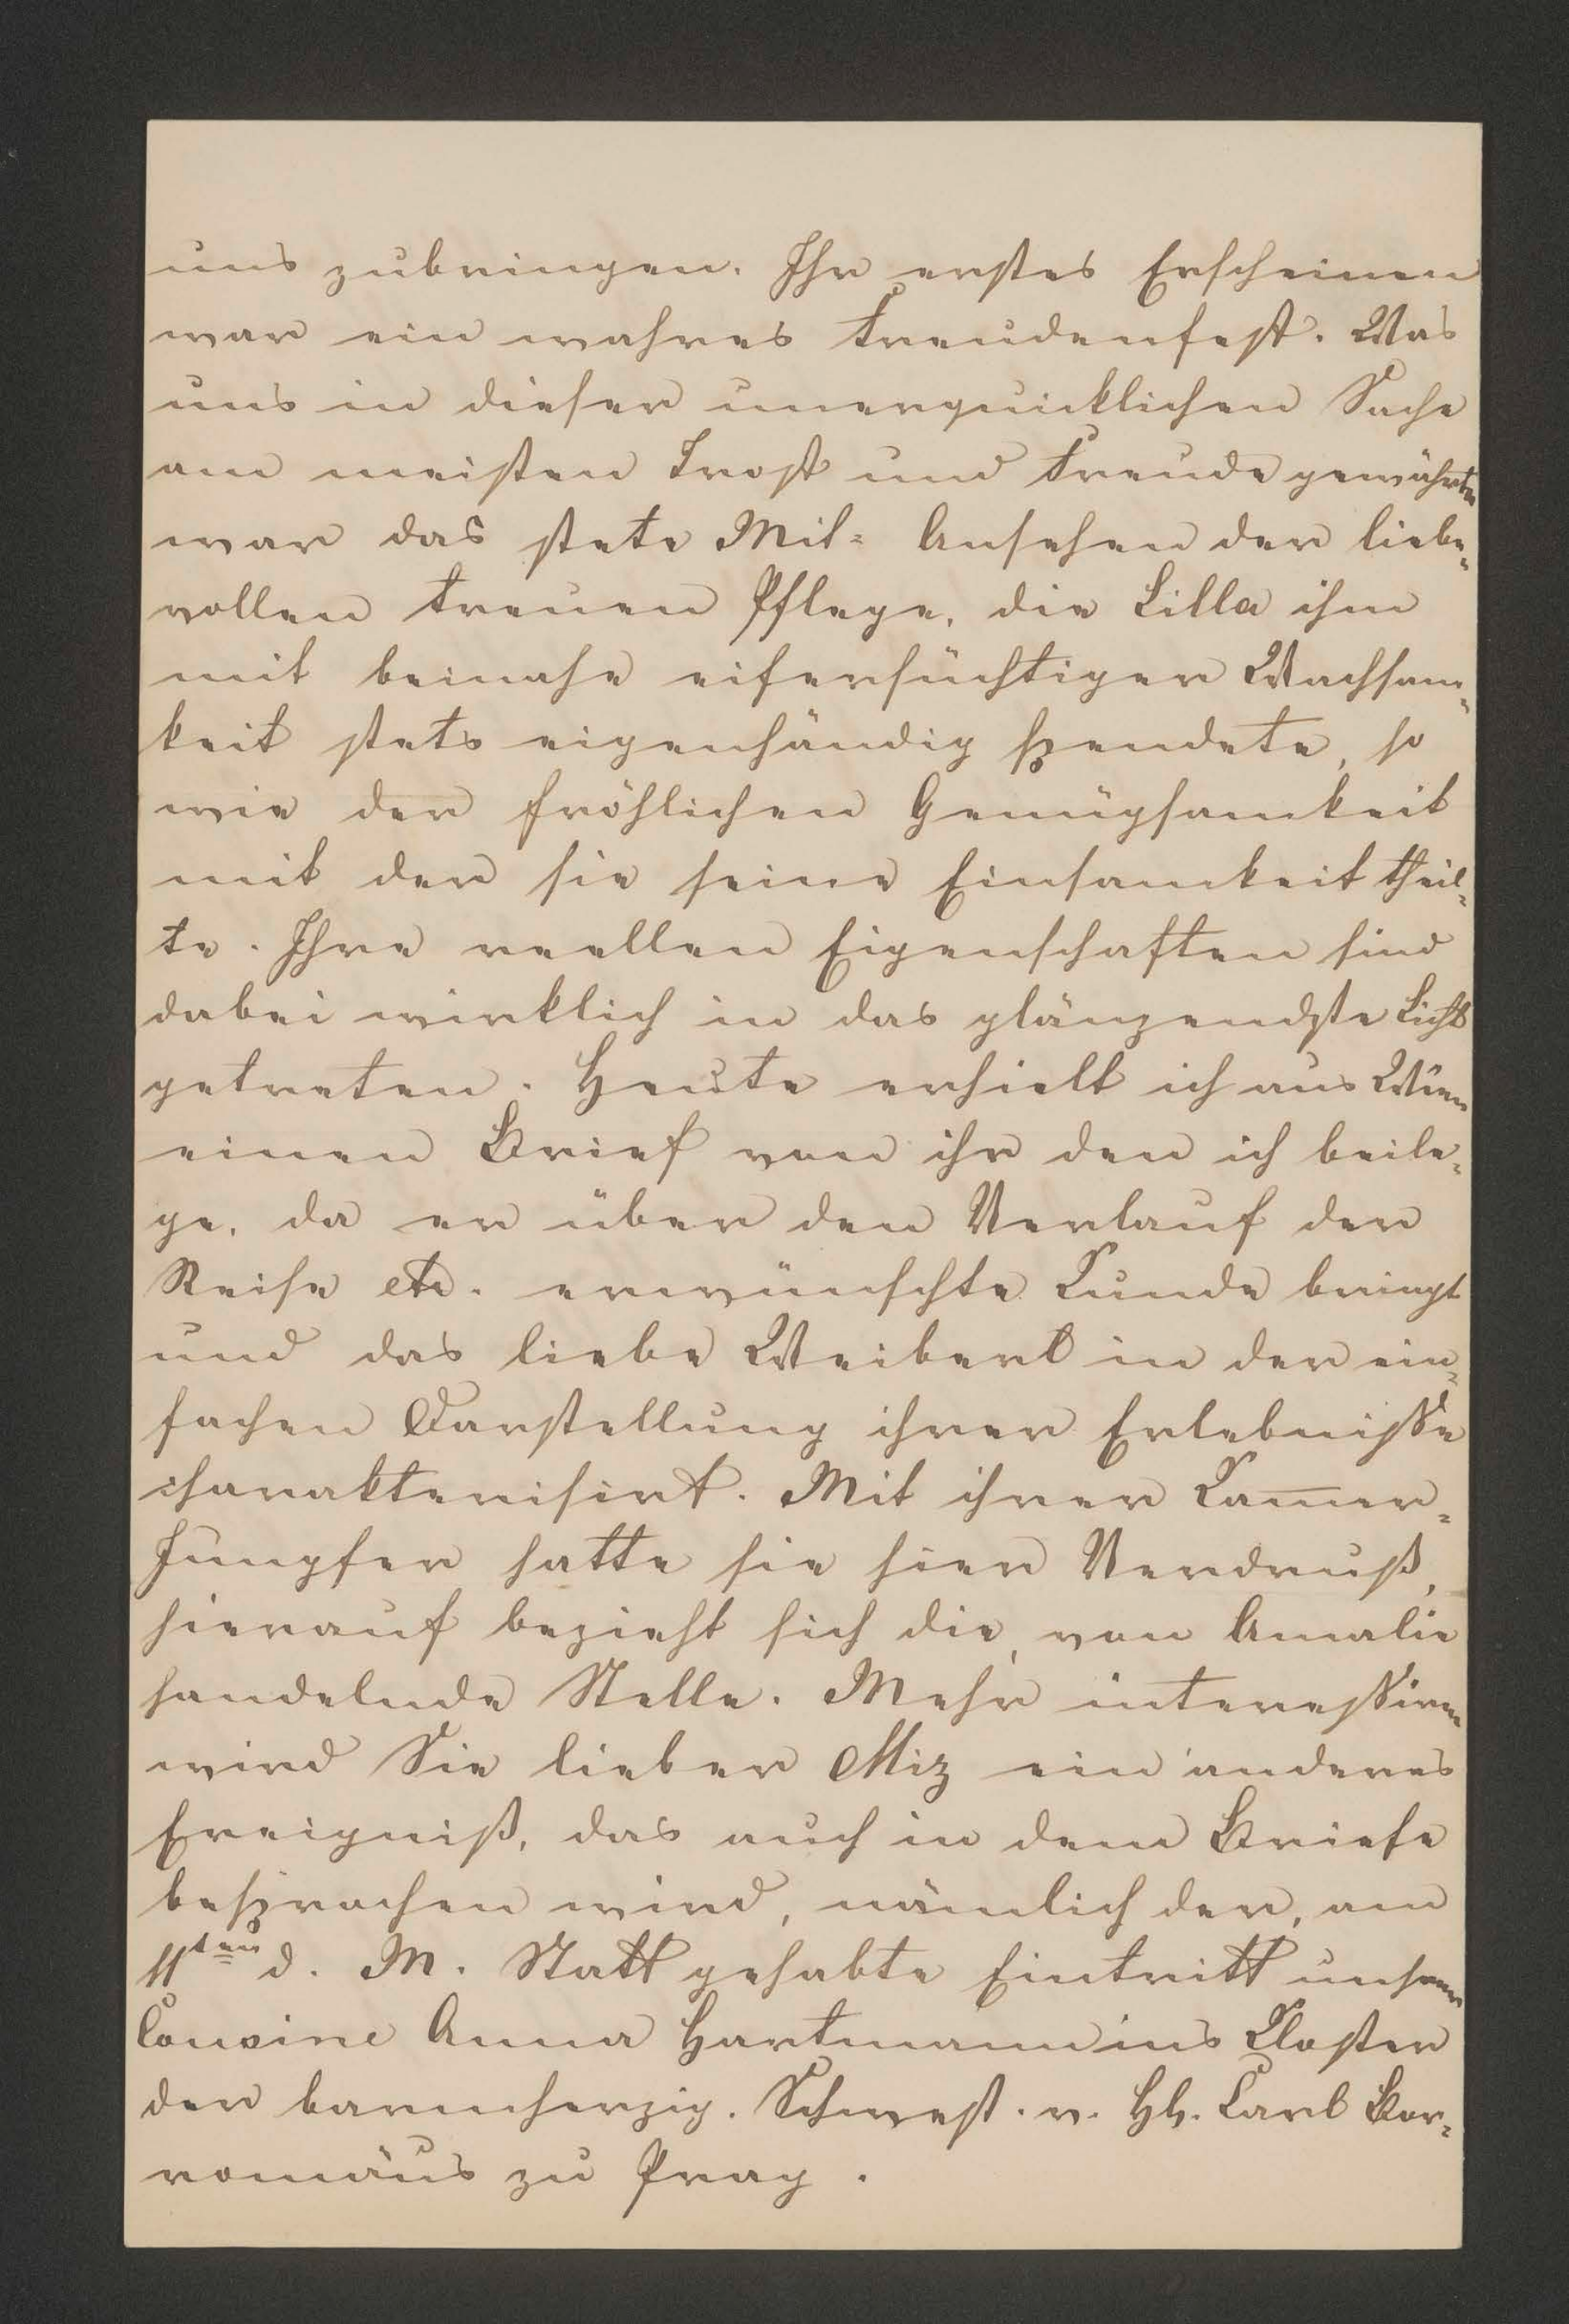 uns zubringen. Ihr erstes Erscheinen
war ein wahres Freudenfest. Was
uns in dieser unerquicklichen Sache
am meisten Trost und Freude gewährte
war das stete Mit= Ansehen der liebe=
vollen treuen Pflege, die Lilla ihm
mit beinahe eifersüchtiger Wachsam=
keit stets eigenhändig spendete, so
wie der fröhlichen Genügsamkeit
mit der sie seine Einsamkeit theil=
te. Ihre reellen Eigenschaften sind
dabei wirklich in das glänzendste Licht
getreten. Heute erhielt ich aus Wien
einen Brief von ihr den ich beile=
ge, da er über den Verlauf der
Reise etc. erwünschte Kunde bringt
und das liebe Weiberl in der ein=
fachen Darstellung ihrer Erlebnisse
charakterisirt. Mit ihrer Kam̅er=
Jungfer hatte sie hier Verdruß,
hierauf bezieht sich die, von Amalie
handelnde Stelle. Mehr interessiren
wird Sie lieber Miz ein anderes
Ereigniß, das auch in dem Briefe
besprochen wird, nämlich der, am
11ten d. M. Statt gehabte Eintritt unserer
Cousine Anna Hartmann ins Kloster
der barmherzig. Schwest. v. Hl. Carl Bor=
romäus zu Prag.